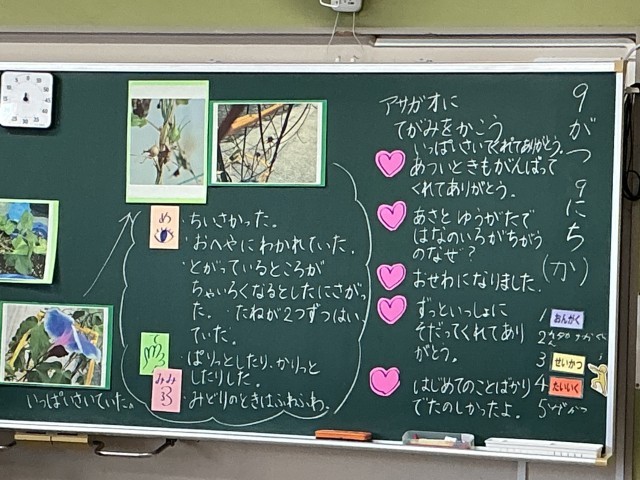 9がつ9にち(か)
アサガオに
てがみをかこう
いっぱいさいてくれてありがとう。
あついときもがんばって
くれてありがとう。
あさと ゆうがたで
はなのいろがちがう
のなぜ?
おせわになりました。
ずっといっしょに
そだってくれてあり
がとう。
はじめてのことばかり
でたのしかったよ。
1 おんがく
2
3 せいかつ
4 たいいく
5
め
・ちいさかった。
・おへやにわかれていた。
・とがっているところが
ちゃいろくなるとしたにさがっ
た。・たねが2つずつはい
っていた。
・ぱりっとしたり、かりっと
したりした。
みみ
・みどりのときはふわふわ。
いっぱいさいていた。